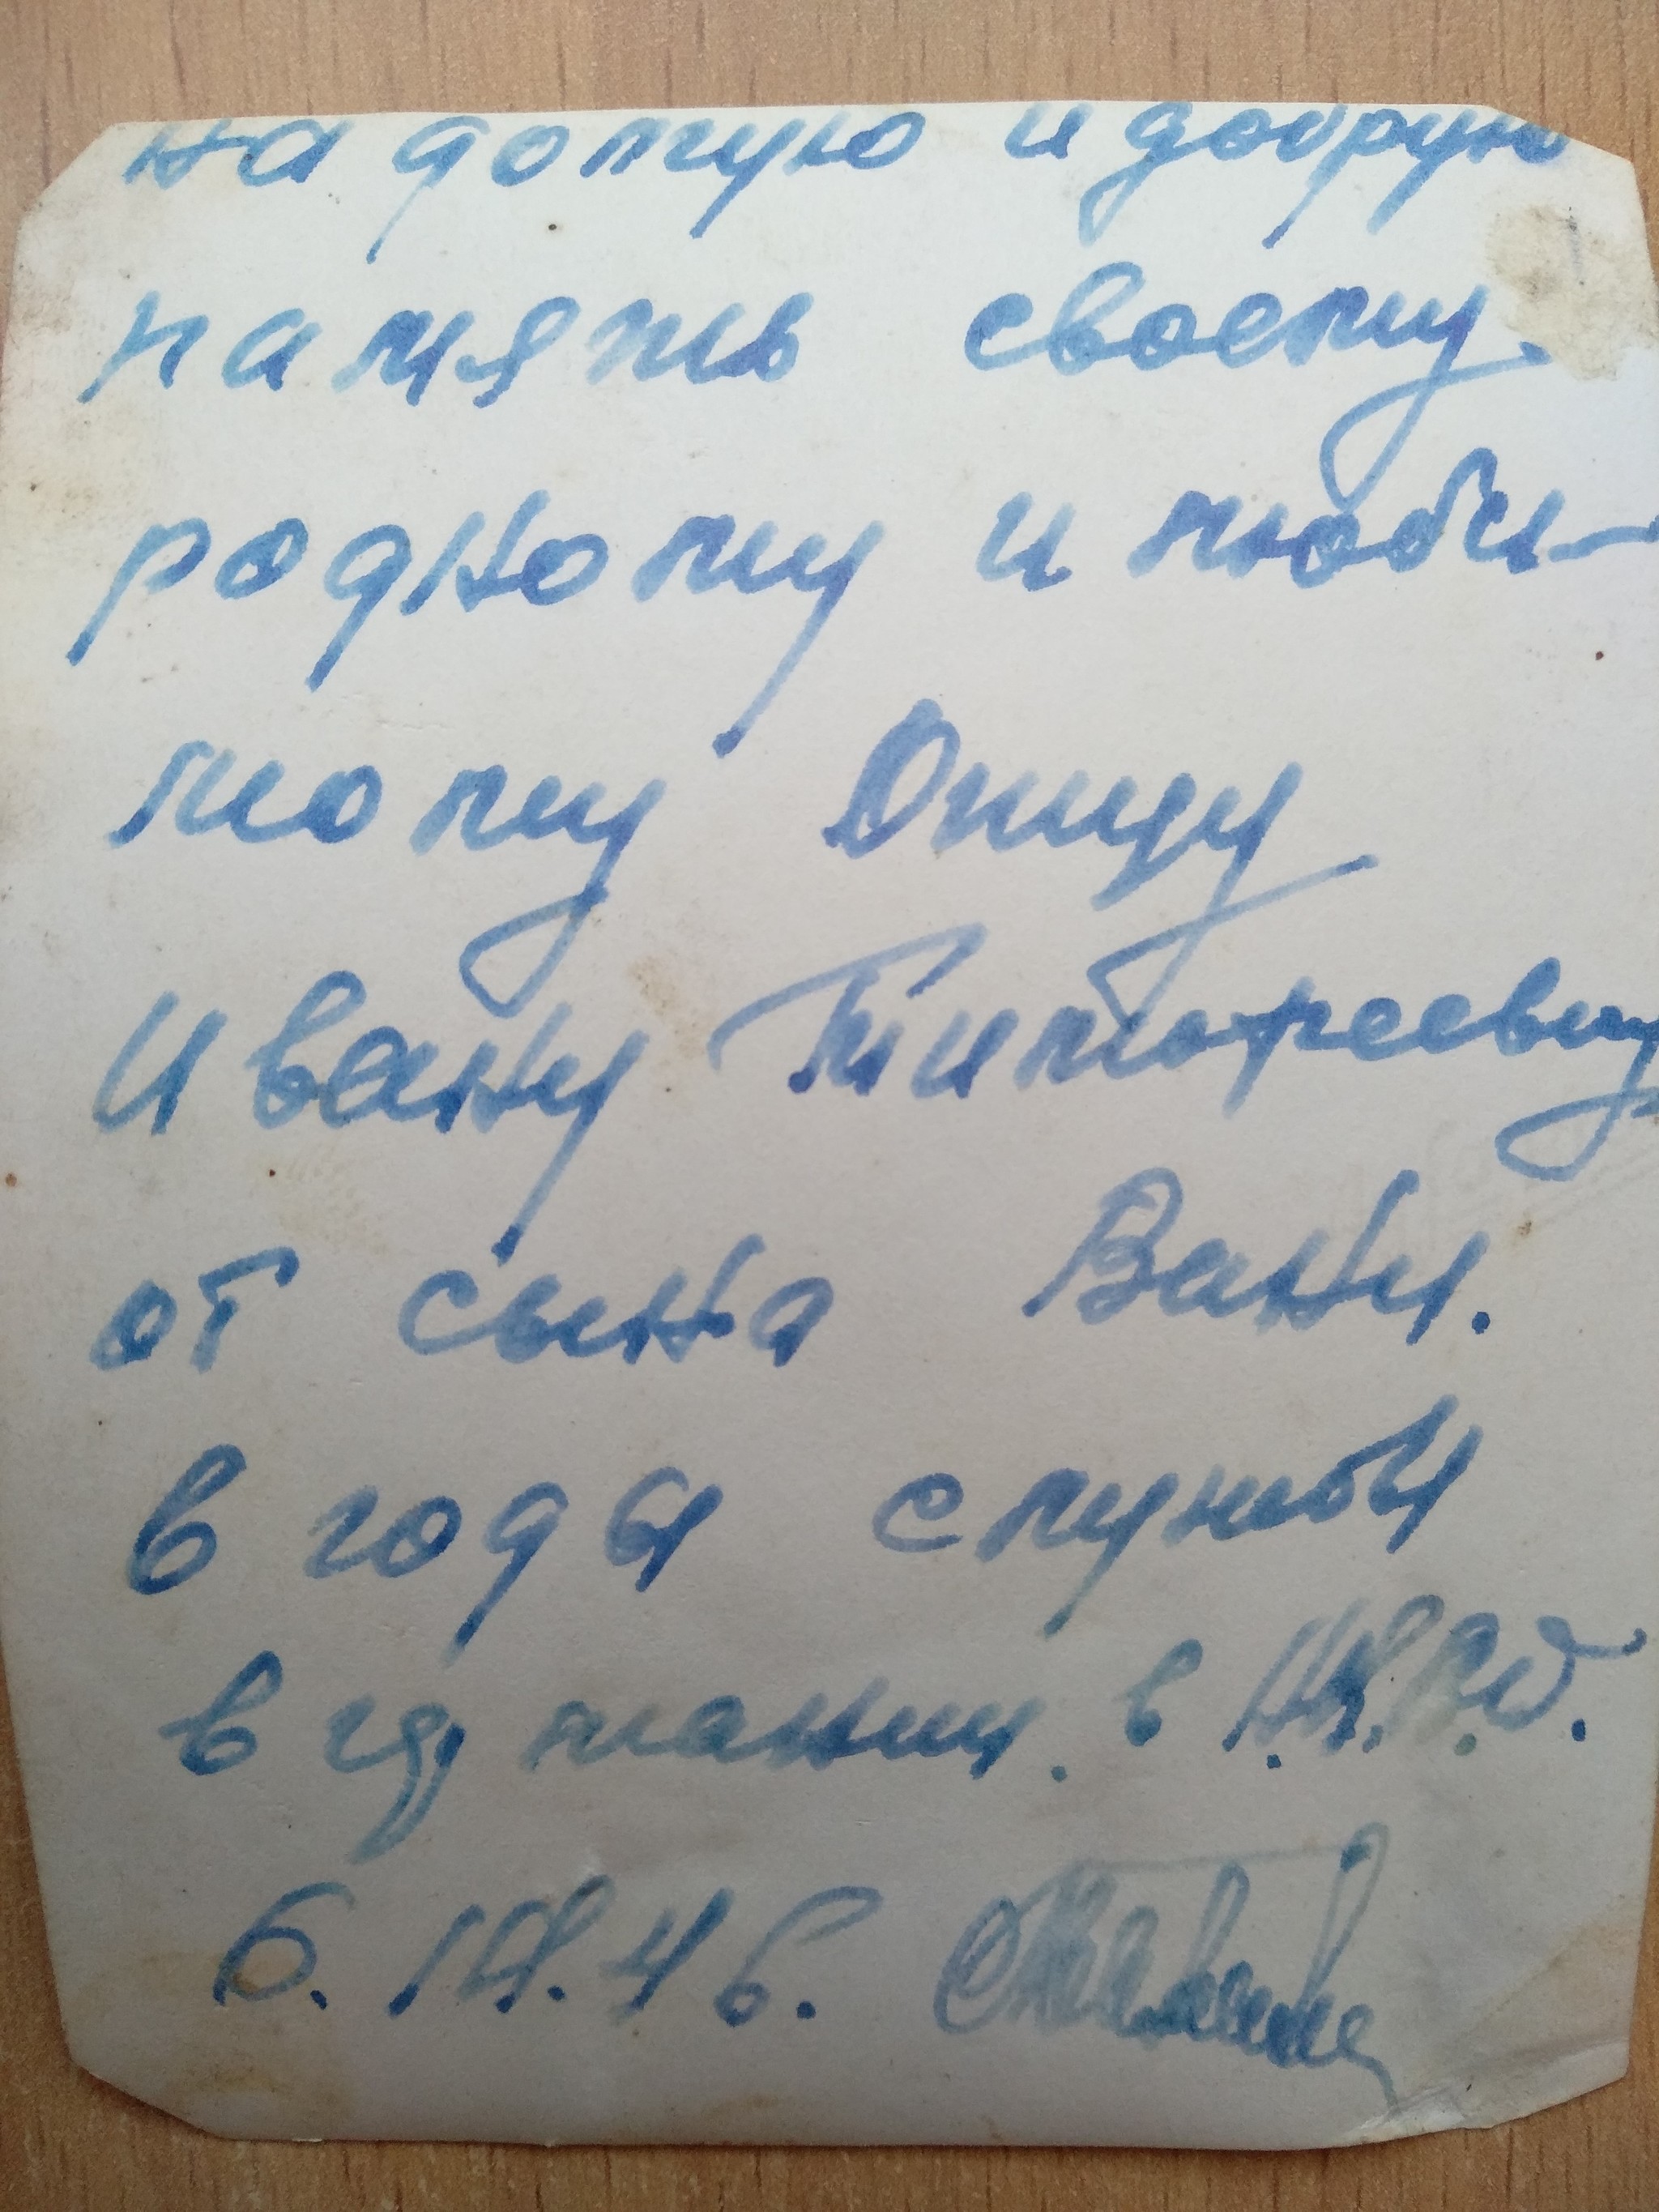 на долгую и добрую
память своему
родному и люби-
мому Отцу
Ивану Тимофеевичу
от сына Вани.
в годы службы
в Германии. в
6. IV. 46.